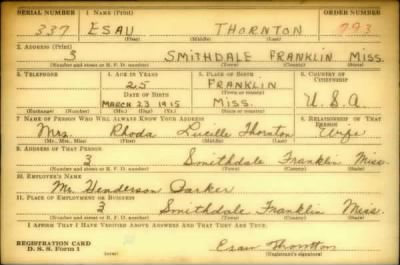 SERIAL NUMBER 1. NAME (Print) ORDER NUMBER
337 ESAU THORNTON 793
(First) (Middle) (Last)
2. ADDRESS (Print)
3 SMITHDALE FRANKLIN MISS.
(Number and street or R. F. D. number) (Town) (County) (State)
3. TELEPHONE 4. AGE IN YEARS 5. PLACE OF BIRTH 6. COUNTRY OF CITIZENSHIP
25 FRANKLIN
DATE OF BIRTH (Town or county)
MARCH 23 1915 MISS. U.S.A.
(Exchange) (Number) (Mo.) (Day) (Yr.) (State or country)
7. NAME OF PERSON WHO WILL ALWAYS KNOW YOUR ADDRESS 8. RELATIONSHIP OF THAT PERSON
Mrs. Rhoda Lucille Thornton Wife
(Mr., Mrs., Miss) (First) (Middle) (Last)
9. ADDRESS OF THAT PERSON
3 Smithdale Franklin Miss.
(Number and street or R. F. D. number) (Town) (County) (State)
10. EMPLOYER'S NAME
Mr. Henderson Parker
11. PLACE OF EMPLOYMENT OR BUSINESS
3 Smithdale Franklin Miss.
(Number and street or R. F. D. number) (Town) (County) (State)
I AFFIRM THAT I HAVE VERIFIED ABOVE ANSWERS AND THAT THEY ARE TRUE.
REGISTRATION CARD
D. S. S. Form 1 (over) Esau Thornton
(Registrant's signature)